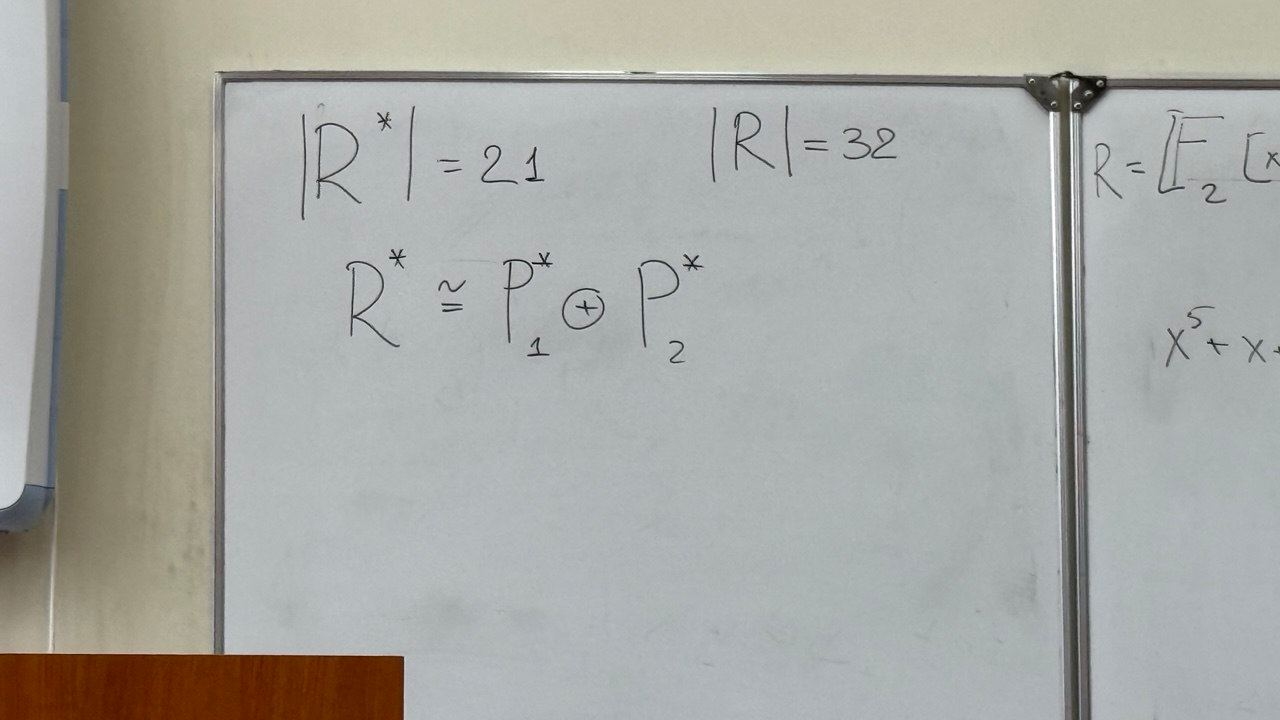 |R*| = 21 |R| = 32
R* ≅ P₁* ⊕ P₂*
R = 𝔽₂ [x
x⁵ + x +